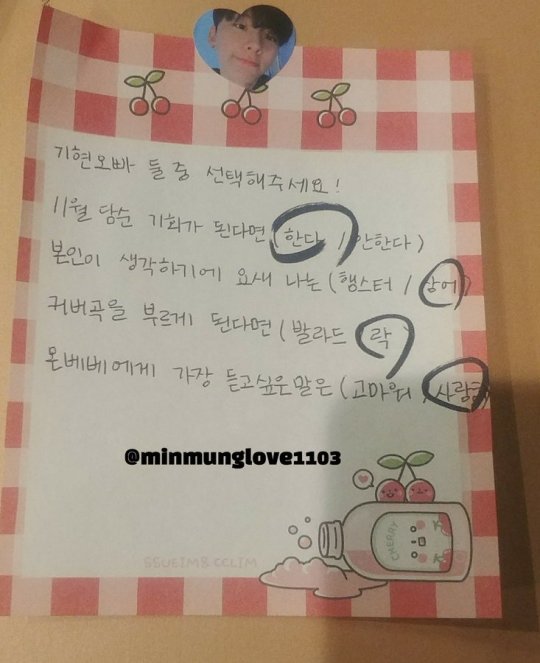 기현오빠 둘 중 선택해주세요!
11월 담순 기회가 된다면 (한다 / 안한다)
본인이 생각하기에 요새 나는 (햄스터 / 상어)
커버곡을 부르게 된다면 (발라드 락)
몬베베에게 가장 듣고싶은말은 (고마워 / 사랑해
@minmunglove1103
CHERRY
SSUEIM&CCLIM